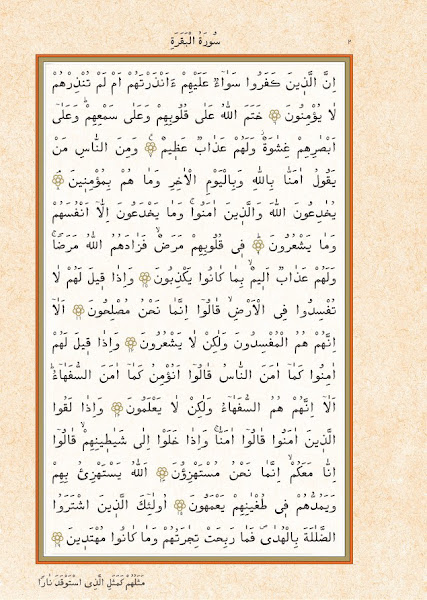 سُورَةُ الْبَقَرَةِ
٢
اِنَّ الَّذ۪ينَ كَفَرُوا سَوَٓاءٌ عَلَيْهِمْ ءَاَنْذَرْتَهُمْ اَمْ لَمْ تُنْذِرْهُمْ
لَا يُؤْمِنُونَ ۞ خَتَمَ اللّٰهُ عَلٰى قُلُوبِهِمْ وَعَلٰى سَمْعِهِمْۜ وَعَلٰٓى
اَبْصَارِهِمْ غِشَاوَةٌۘ وَلَهُمْ عَذَابٌ عَظ۪يمٌ۟ ۞ وَمِنَ النَّاسِ مَنْ
يَقُولُ اٰمَنَّا بِاللّٰهِ وَبِالْيَوْمِ الْاٰخِرِ وَمَا هُمْ بِمُؤْمِن۪ينَۢ
يُخَادِعُونَ اللّٰهَ وَالَّذ۪ينَ اٰمَنُواۚ وَمَا يَخْدَعُونَ اِلَّٓا اَنْفُسَهُمْ
وَمَا يَشْعُرُونَۜ ۞ ف۪ي قُلُوبِهِمْ مَرَضٌۙ فَزَادَهُمُ اللّٰهُ مَرَضًاۚ
وَلَهُمْ عَذَابٌ اَل۪يمٌۙ بِمَا كَانُوا يَكْذِبُونَ ۞ وَاِذَا ق۪يلَ لَهُمْ لَا
تُفْسِدُوا فِي الْاَرْضِۙ قَالُٓوا اِنَّمَا نَحْنُ مُصْلِحُونَ ۞ اَلَٓا
اِنَّهُمْ هُمُ الْمُفْسِدُونَ وَلٰكِنْ لَا يَشْعُرُونَ ۞ وَاِذَا ق۪يلَ لَهُمْ
اٰمِنُوا كَمَٓا اٰمَنَ النَّاسُ قَالُٓوا اَنُؤْمِنُ كَمَٓا اٰمَنَ السُّفَهَٓاءُۜ
اَلَٓا اِنَّهُمْ هُمُ السُّفَهَٓاءُ وَلٰكِنْ لَا يَعْلَمُونَ ۞ وَاِذَا لَقُوا
الَّذ۪ينَ اٰمَنُوا قَالُٓوا اٰمَنَّاۚ وَاِذَا خَلَوْا اِلٰى شَيَاط۪ينِهِمْۙ قَالُٓوا
اِنَّا مَعَكُمْۙ اِنَّمَا نَحْنُ مُسْتَهْزِؤُ۫نَ ۞ اَللّٰهُ يَسْتَهْزِئُ بِهِمْ
وَيَمُدُّهُمْ ف۪ي طُغْيَانِهِمْ يَعْمَهُونَ ۞ اُو۬لٰٓئِكَ الَّذ۪ينَ اشْتَرَوُا
الضَّلَالَةَ بِالْهُدٰىۖ فَمَا رَبِحَتْ تِجَارَتُهُمْ وَمَا كَانُوا مُهْتَد۪ينَ ۞
مَثَلُهُمْ كَمَثَلِ الَّذِي اسْتَوْقَدَ نَارًا